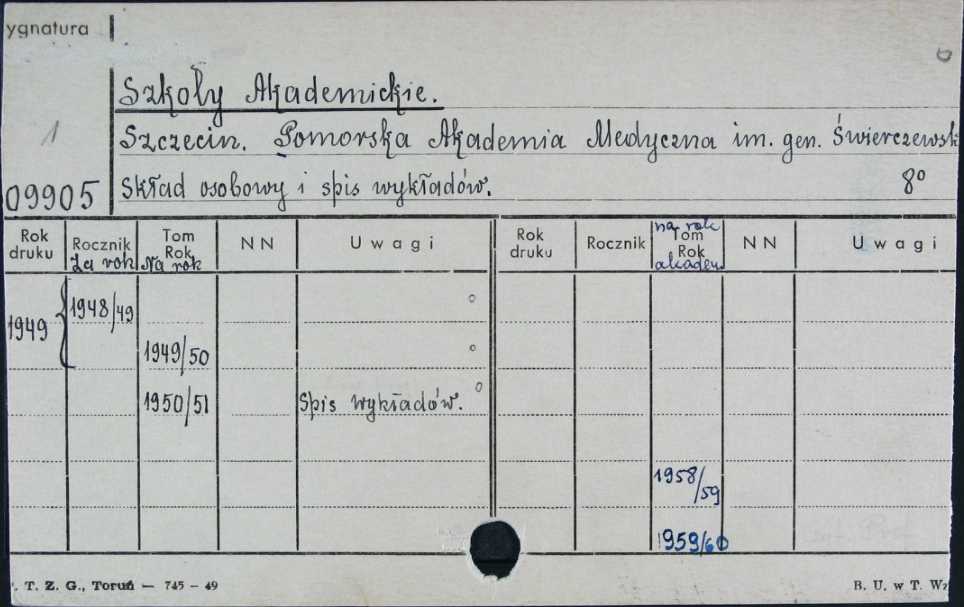 ygnatura
Szkoły Akademickie.
1
Szczecin. Pomorska Akademia Medyczna im. gen. Świerczewsk
09905 Skład osobowy i spis wykładów. 8°
Rok druku Rocznik Za rok Tom Rok Na rok NN Uwagi Rok druku Rocznik na rok Tom Rok akadem NN Uwagi
1949 { 1948/49 o
1949/50 o
1950/51 Spis wykładów. o
1958/59
1959/60
. T. Z. G., Toruń — 745 – 49 B. U. w T. Wz